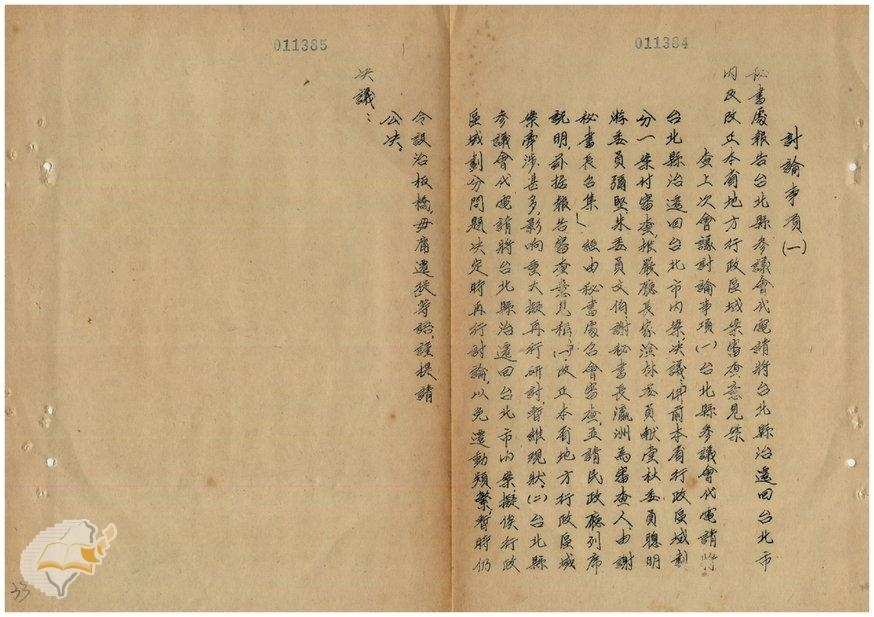 011384
討論事項(一)
秘書處報告台北縣參議會代電請將台北縣治遷回台北市
內及改正本省地方行政區域案審查意見案
查上次會議討論事項(一)台北縣參議會代電請將
台北縣治遷回台北市內案決議:「併前本省行政區域劃
分一案付審查,推嚴廳長家淦林委員獻堂杜委員聰明
將委員彌堅朱委員文伯謝秘書長瀛洲為審查人,由謝
秘書長召集」經由秘書處召會審查,並請民政廳列席
說明,茲據報告審查意見稱:(一)改正本省地方行政區域
案牽涉甚多,影响重大擬再行研討,暫維現狀。(二)台北縣
參議會代電請將台北縣治遷回台北市內案擬俟行政
區域劃分問題決定時再行討論,以免遷動頻繁,暫時仍
011385
令設治板橋,毋庸遷移等語,謹提請
公決。
決議:
33